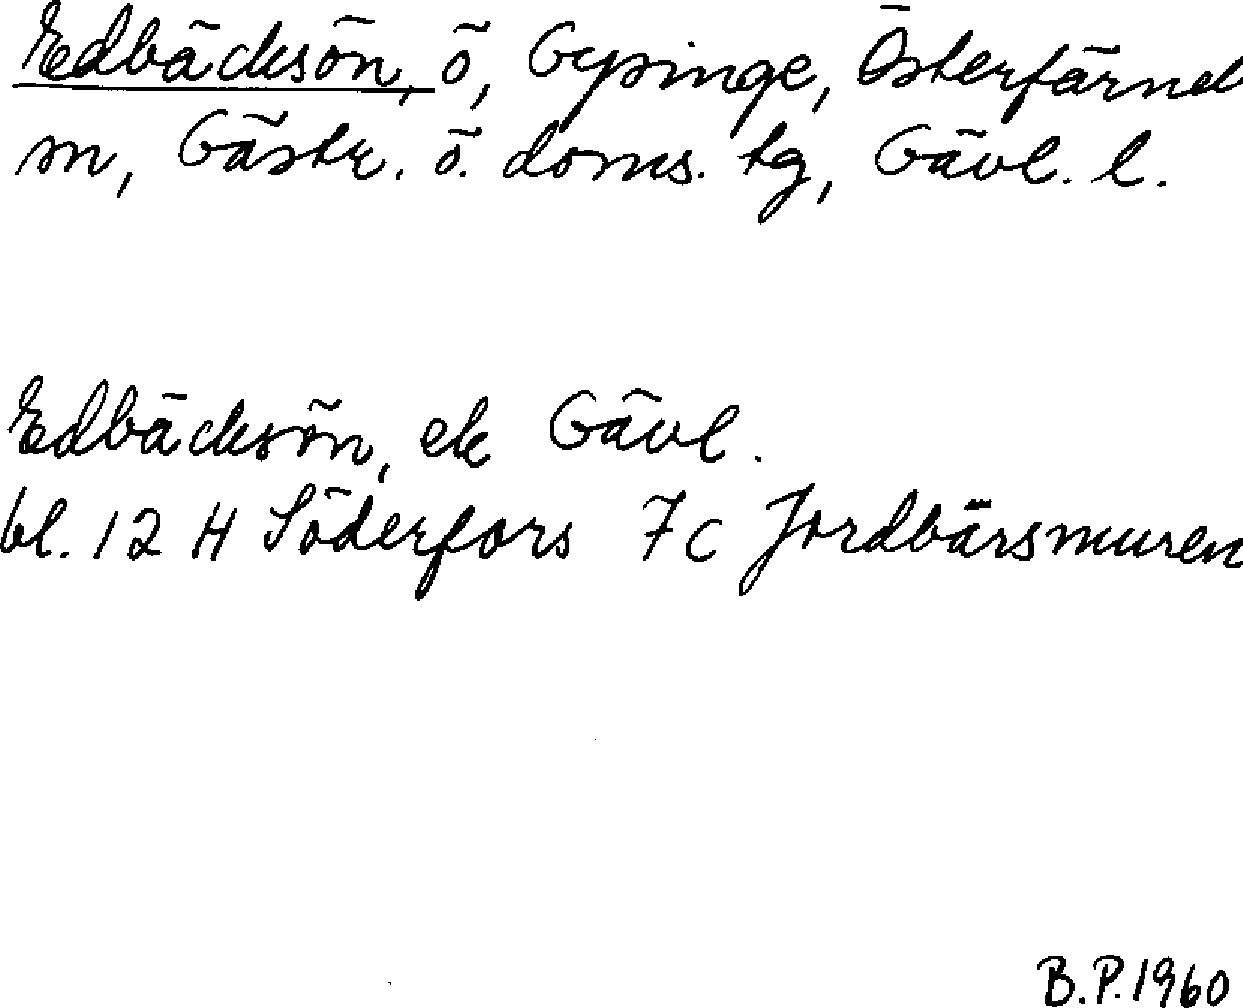 Edbäcksön, ö, Gysinge, Österfärneb
sn, Gästr. ö. doms. tg, Gävl. l.
Edbäcksön, ek Gävl.
bl. 12 H Söderfors 7c Jordbärsmuren
B.P. 1960